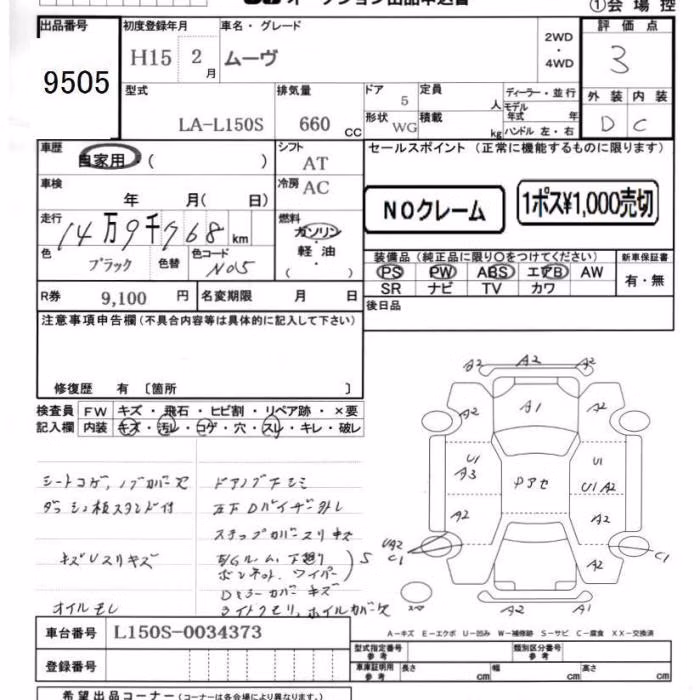 オークション出品申込書
①会場控
出品番号
9505
初度登録年月
H15 2月
車名・グレード
ムーヴ
2WD
・
4WD
評価点
3
外装 内装
D C
型式
LA-L150S
排気量
660 CC
ドア 5
形状 WG
定員 人
積載 kg
ディーラー・並行
モデル年式 年
ハンドル 左・右
車歴
自家用・( )
シフト
AT
車検
年 月( 日)
冷房 AC
走行
14万9千768km
燃料
ガソリン
軽・油
( )
色
ブラック
色替
色コード
N05
R券 9,100 円
名変期限 月 日
セールスポイント (正常に機能するものに限ります)
NOクレーム
1ポス¥1,000売切
装備品 (純正品に限り○をつけてください)
新車保証書
PS PW ABS エアB AW
SR ナビ TV カワ
有・無
後日品
注意事項申告欄(不具合内容等は具体的に記入して下さい)
修復歴 有 〔箇所 〕
検査員記入欄
FW キズ・飛石・ヒビ割・リペア跡・×要
内装 キズ・汚レ・コゲ・穴・スレ・キレ・破レ
シートコゲ,ノブカバー欠
ダッシュ板スタンド付
キズUスリキズ
オイルモレ
ドアノブ下シミ
左下Dバイザー外レ
ステップカバースリキズ
E/Gルーム,下廻り
ボンネット,ワイパー
S
Dミラーカバーキズ
ライトクモリ,ホイルカバー欠
A2 A2 A2
A2 A1 A2
U1
A3
Pアセ
U1
U1 A2
A2 A2
UA2
C1
A2
C1
A2 A1
A-キズ E-エクボ U-凹み W-補修跡 S-サビ C-腐食 XX-交換済
車台番号 L150S-0034373
登録番号
型式指定番号
参考
類別区分番号
車庫証明用
参考
長さ cm 幅 cm 高さ cm
希望出品コーナー (コーナーは各会場により異なります。)